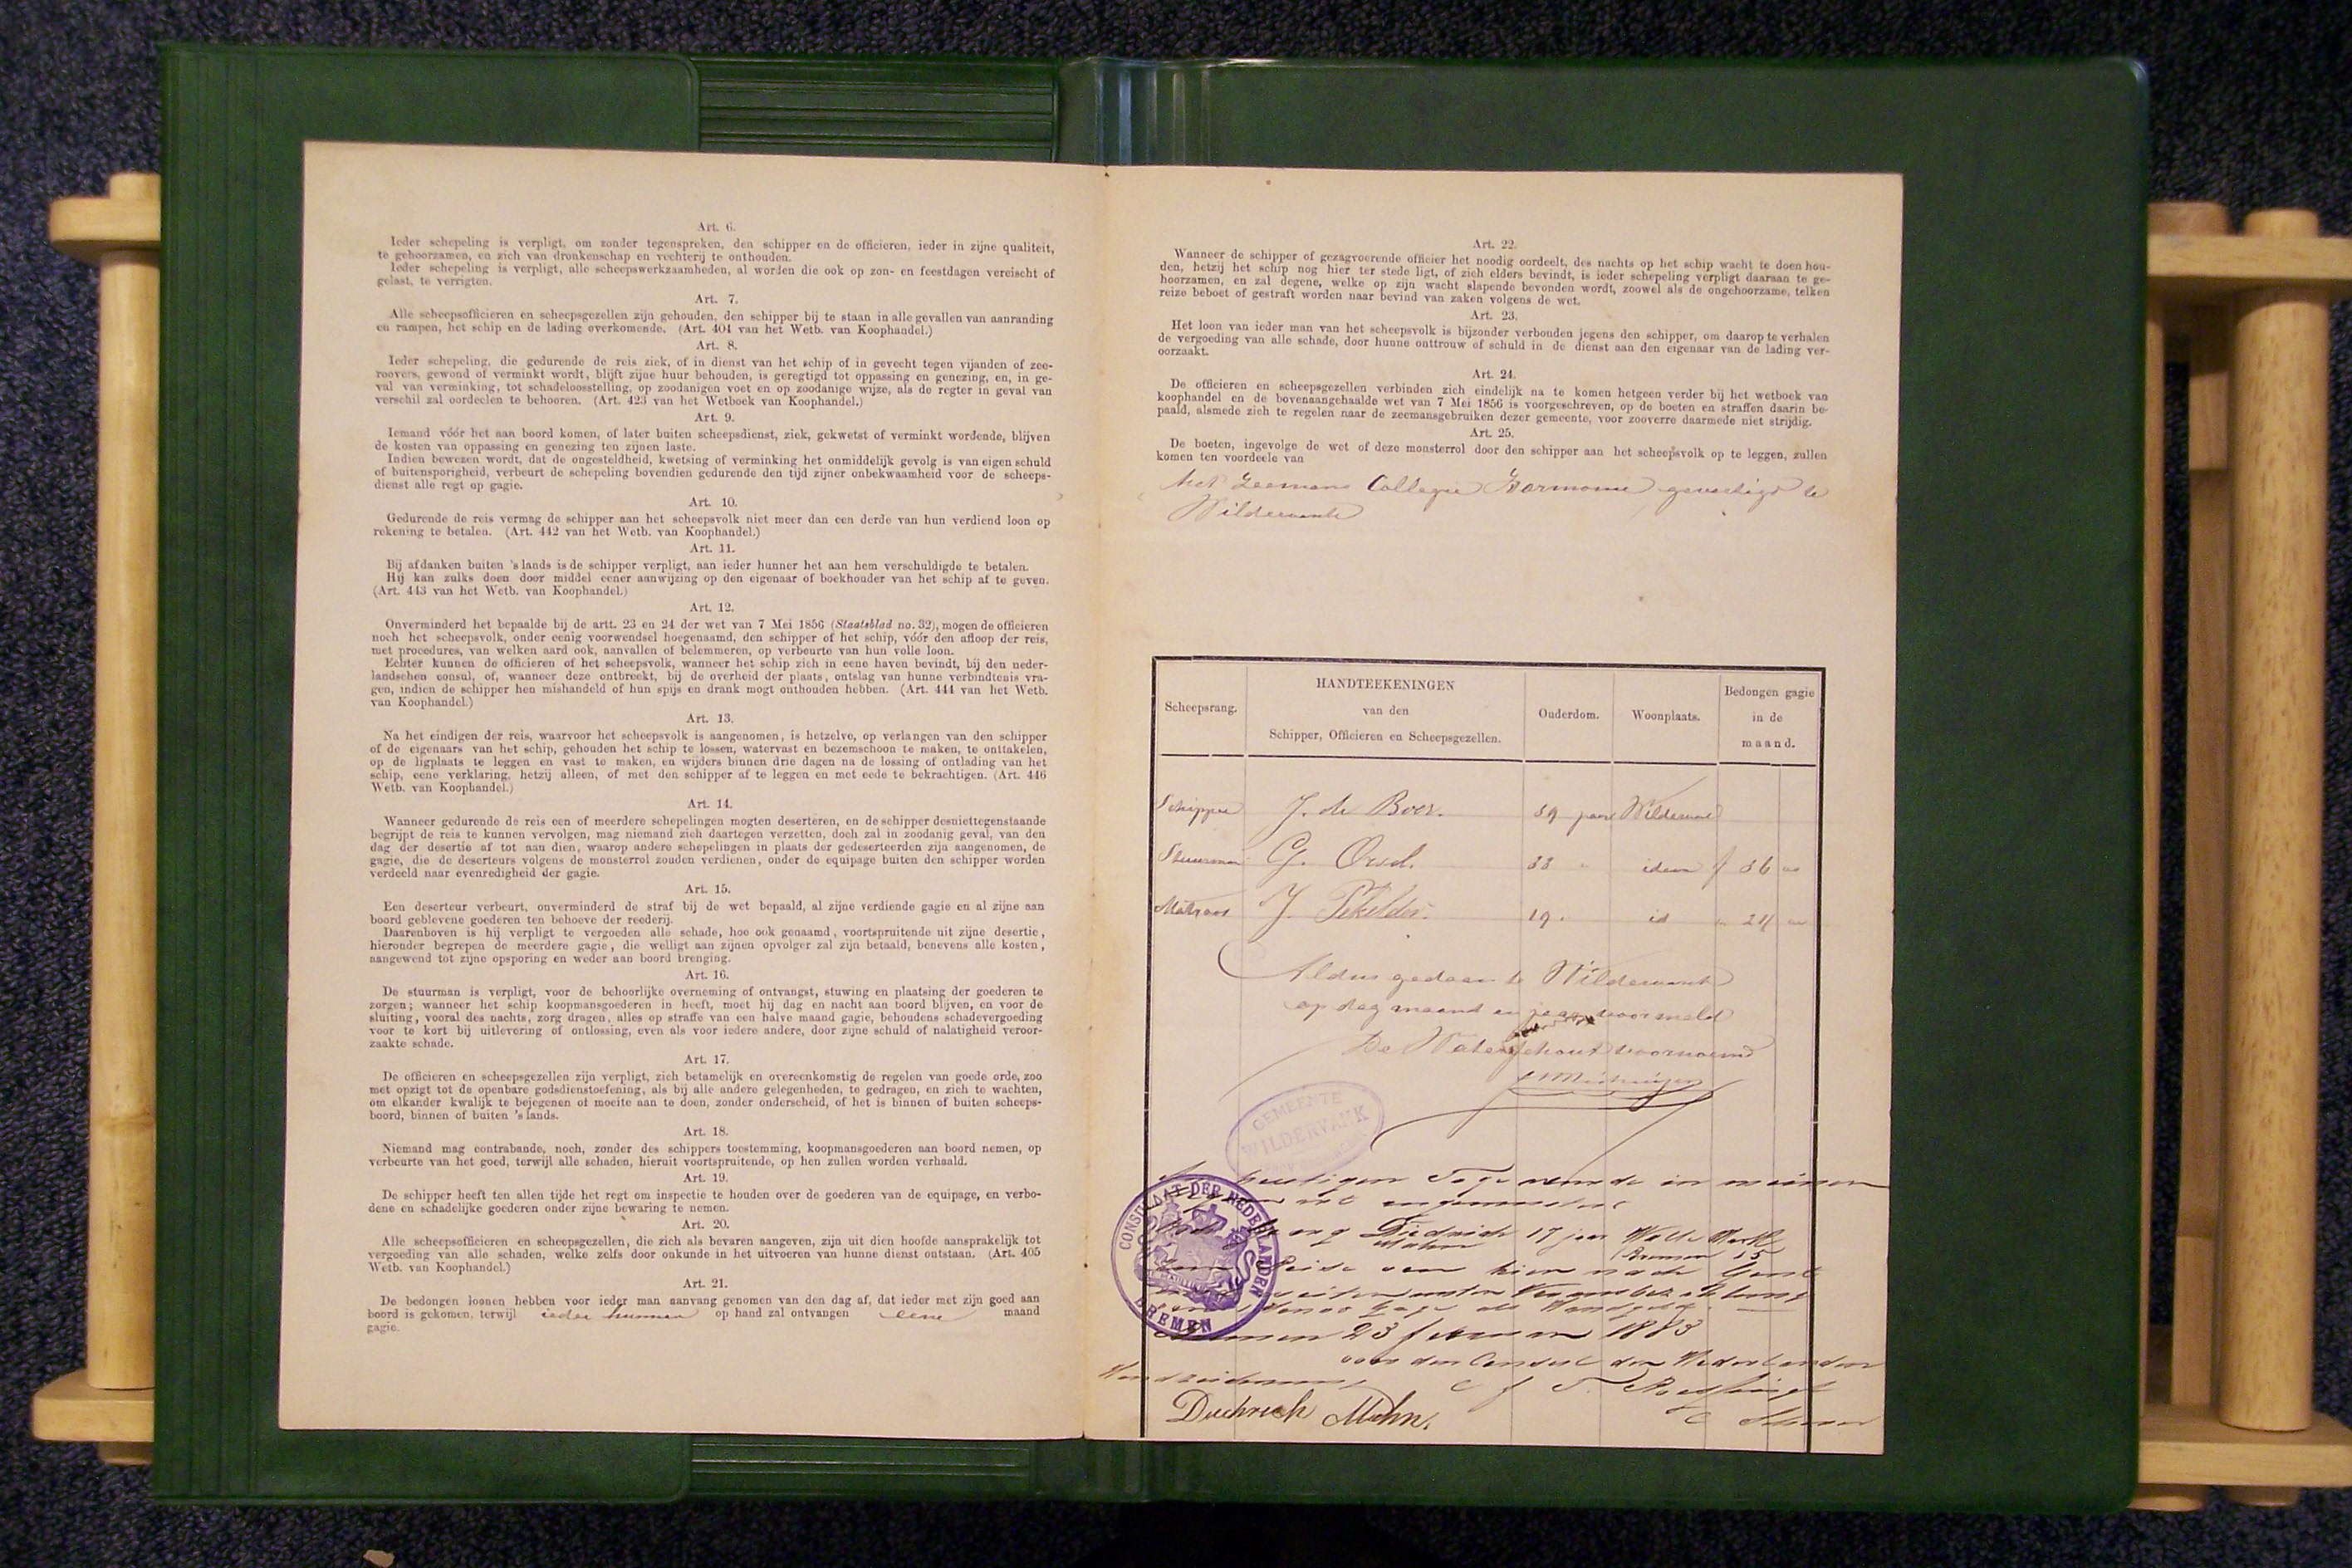 Art. 6.
Ieder schepeling is verpligt, om zonder tegenspreken, den schipper en de officieren, ieder in zijne qualiteit,
te gehoorzamen, en zich van dronkenschap en vechterij te onthouden.
Ieder schepeling is verpligt, alle scheepswerkzaamheden, al worden die ook op zon- en feestdagen vereischt of
gelast, te verrigten.
Art. 7.
Alle scheepsofficieren en scheepsgezellen zijn gehouden, den schipper bij te staan in alle gevallen van aanranding
en rampen, het schip en de lading overkomende. (Art. 404 van het Wetb. van Koophandel.)
Art. 8.
Ieder schepeling, die gedurende de reis ziek, of in dienst van het schip of in gevecht tegen vijanden of zee-
roovers, gewond of verminkt wordt, blijft zijne huur behouden, is geregtigd tot oppassing en genezing, en, in ge-
val van verminking, tot schadeloosstelling, op zoodanigen voet en op zoodanige wijze, als de regter in geval van
verschil zal oordeelen te behooren. (Art. 423 van het Wetboek van Koophandel.)
Art. 9.
Iemand vóór het aan boord komen, of later buiten scheepsdienst, ziek, gekwetst of verminkt wordende, blijven
de kosten van oppassing en genezing ten zijnen laste.
Indien bewezen wordt, dat de ongesteldheid, kwetsing of verminking het onmiddelijk gevolg is van eigen schuld
of buitensporigheid, verbeurt de schepeling bovendien gedurende den tijd zijner onbekwaamheid voor de scheeps-
dienst alle regt op gagie.
Art. 10.
Gedurende de reis vermag de schipper aan het scheepsvolk niet meer dan een derde van hun verdiend loon op
rekening te betalen. (Art. 442 van het Wetb. van Koophandel.)
Art. 11.
Bij afdanken buiten 's lands is de schipper verpligt, aan ieder hunner het aan hem verschuldigde te betalen.
Hij kan zulks doen door middel eener aanwijzing op den eigenaar of boekhouder van het schip af te geven.
(Art. 443 van het Wetb. van Koophandel.)
Art. 12.
Onverminderd het bepaalde bij de artt. 23 en 24 der wet van 7 Mei 1856 (Staatsblad no. 32), mogen de officieren
noch het scheepsvolk, onder eenig voorwendsel hoegenaamd, den schipper of het schip, vóór den afloop der reis,
met procedures, van welken aard ook, aanvallen of belemmeren, op verbeurte van hun volle loon.
Echter kunnen de officieren of het scheepsvolk, wanneer het schip zich in eene haven bevindt, bij den neder-
landschen consul, of, wanneer deze ontbreekt, bij de overheid der plaats, ontslag van hunne verbindtenis vra-
gen, indien de schipper hen mishandeld of hun spijs en drank mogt onthouden hebben. (Art. 444 van het Wetb.
van Koophandel.)
Art. 13.
Na het eindigen der reis, waarvoor het scheepsvolk is aangenomen, is hetzelve, op verlangen van den schipper
of de eigenaars van het schip, gehouden het schip te lossen, watervast en bezemschoon te maken, te onttakelen,
op de ligplaats te leggen en vast te maken, en wijders binnen drie dagen na de lossing of ontlading van het
schip, eene verklaring, hetzij alleen, of met den schipper af te leggen en met eede te bekrachtigen. (Art. 446
Wetb. van Koophandel.)
Art. 14.
Wanneer gedurende de reis een of meerdere schepelingen mogten deserteren, en de schipper desniettegenstaande
begrijpt de reis te kunnen vervolgen, mag niemand zich daartegen verzetten, doch zal in zoodanig geval, van den
dag der desertie af tot aan dien, waarop andere schepelingen in plaats der gedeserteerden zijn aangenomen, de
gagie, die de deserteurs volgens de monsterrol zouden verdienen, onder de equipage buiten den schipper worden
verdeeld naar evenredigheid der gagie.
Art. 15.
Een deserteur verbeurt, onverminderd de straf bij de wet bepaald, al zijne verdiende gagie en al zijne aan
boord geblevene goederen ten behoeve der reederij.
Daarenboven is hij verpligt te vergoeden alle schade, hoe ook genaamd, voortspruitende uit zijne desertie,
hieronder begrepen de meerdere gagie, die welligt aan zijnen opvolger zal zijn betaald, benevens alle kosten,
aangewend tot zijne opsporing en weder aan boord brenging.
Art. 16.
De stuurman is verpligt, voor de behoorlijke overneming of ontvangst, stuwing en plaatsing der goederen te
zorgen; wanneer het schip koopmansgoederen in heeft, moet hij dag en nacht aan boord blijven, en voor de
sluiting, vooral des nachts, zorg dragen, alles op straffe van een halve maand gagie, behoudens schadevergoeding
voor te kort bij uitlevering of ontlossing, even als voor iedere andere, door zijne schuld of nalatigheid veroor-
zaakte schade.
Art. 17.
De officieren en scheepsgezellen zijn verpligt, zich betamelijk en overeenkomstig de regelen van goede orde, zoo
met opzigt tot de openbare godsdienstoefening, als bij alle andere gelegenheden, te gedragen, en zich te wachten,
om elkander kwalijk te bejegenen of moeite aan te doen, zonder onderscheid, of het is binnen of buiten scheeps-
boord, binnen of buiten 's lands.
Art. 18.
Niemand mag contrabande, noch, zonder des schippers toestemming, koopmansgoederen aan boord nemen, op
verbeurte van het goed, terwijl alle schaden, hieruit voortspruitende, op hen zullen worden verhaald.
Art. 19.
De schipper heeft ten allen tijde het regt om inspectie te houden over de goederen van de equipage, en verbo-
dene en schadelijke goederen onder zijne bewaring te nemen.
Art. 20.
Alle scheepsofficieren en scheepsgezellen, die zich als bevaren aangeven, zijn uit dien hoofde aansprakelijk tot
vergoeding van alle schaden, welke zelfs door onkunde in het uitvoeren van hunne dienst ontstaan. (Art. 405
Wetb. van Koophandel.)
Art. 21.
De bedongen loonen hebben voor ieder man aanvang genomen van den dag af, dat ieder met zijn goed aan
boord is gekomen, terwijl ieder hunner op hand zal ontvangen eene maand
gagie.
Art. 22.
Wanneer de schipper of gezagvoerende officier het noodig oordeelt, des nachts op het schip wacht te doen hou-
den, hetzij het schip nog hier ter stede ligt, of zich elders bevindt, is ieder schepeling verpligt daaraan te ge-
hoorzamen, en zal degene, welke op zijn wacht slapende bevonden wordt, zoowel als de ongehoorzame, telken
reize beboet of gestraft worden naar bevind van zaken volgens de wet.
Art. 23.
Het loon van ieder man van het scheepsvolk is bijzonder verbonden jegens den schipper, om daarop te verhalen
de vergoeding van alle schade, door hunne onttrouw of schuld in de dienst aan den eigenaar van de lading ver-
oorzaakt.
Art. 24.
De officieren en scheepsgezellen verbinden zich eindelijk na te komen hetgeen verder bij het wetboek van
koophandel en de bovenaangehaalde wet van 7 Mei 1856 is voorgeschreven, op de boeten en straffen daarin be-
paald, alsmede zich te regelen naar de zeemansgebruiken dezer gemeente, voor zooverre daarmede niet strijdig.
Art. 25.
De boeten, ingevolge de wet of deze monsterrol door den schipper aan het scheepsvolk op te leggen, zullen
komen ten voordeele van
het Zeemans Collegie Harmonie gevestigd te
Wildervank
Scheepsrang.
HANDTEEKENINGEN
van den
Schipper, Officieren en Scheepsgezellen.
Ouderdom.
Woonplaats.
Bedongen gagie
in de
maand.
Schipper J. de Boer. 39 jaar Wildervank
Stuurman G. 33 " idem f 36
Matroos J. Pekelder. 19 " id " 24
Aldus gedaan te Wildervank
op dag maand en jaar voormeld
De Waterschout voornoemd
GEMEENTE
WILDERVANK
heutigen Tage wurde in meinem
Diedrich 17 jaar Mark
Mahn Bremen 15
Reise von hier nach
CONSULAAT DER NEDERLANDEN
BREMEN
Bremen 23 1883
voor den Consul der Nederlanden
Diedrich Mahn.